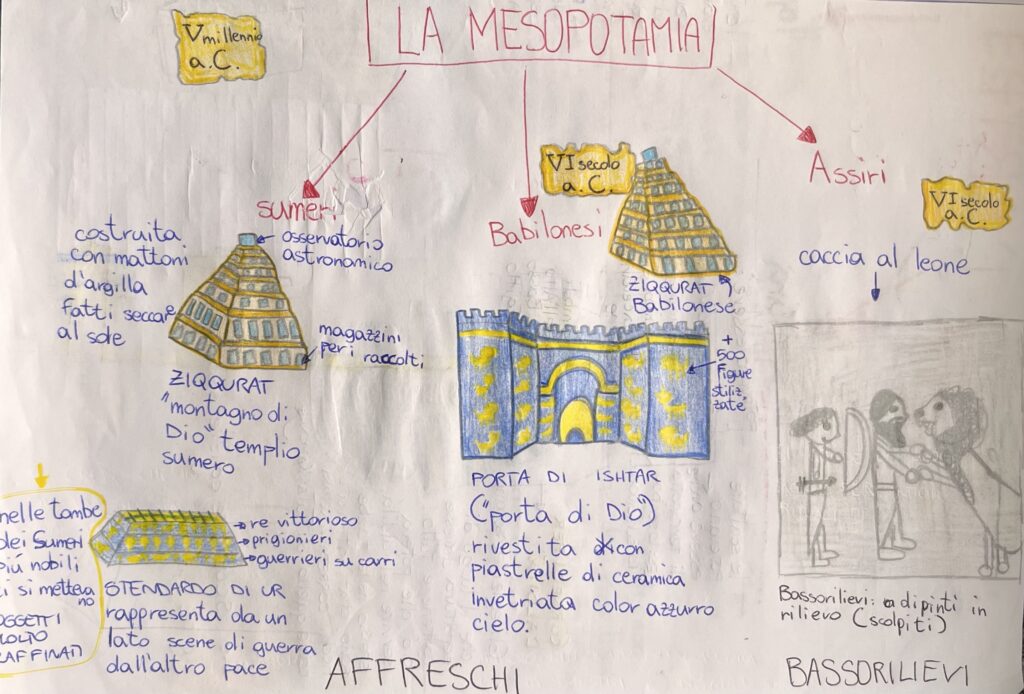 LA MESOPOTAMIA
V millennio
a.C.
sumeri
costruita
con mattoni
d'argilla
fatti seccare
al sole
osservatorio
astronomico
magazzini
per i raccolti
ZIQQURAT
"montagno di
Dio" templio
sumero
nelle tombe
dei Sumeri
più nobili
ci si metteva
no
OGGETTI
MOLTO
RAFFINATI
re vittorioso
prigionieri
guerrieri su carri
STENDARDO DI UR
rappresenta da un
lato scene di guerra
dall'altro pace
VI secolo
a.C.
Babilonesi
ZIQQURAT
Babilonese
+
500
figure
stiliz
zate
PORTA DI ISHTAR
("porta di Dio")
rivestita con
piastrelle di ceramica
invetriata color azzurro
cielo.
AFFRESCHI
Assiri
VI secolo
a.C.
caccia al leone
Bassorilievi: dipinti in
rilievo (scolpiti)
BASSORILIEVI